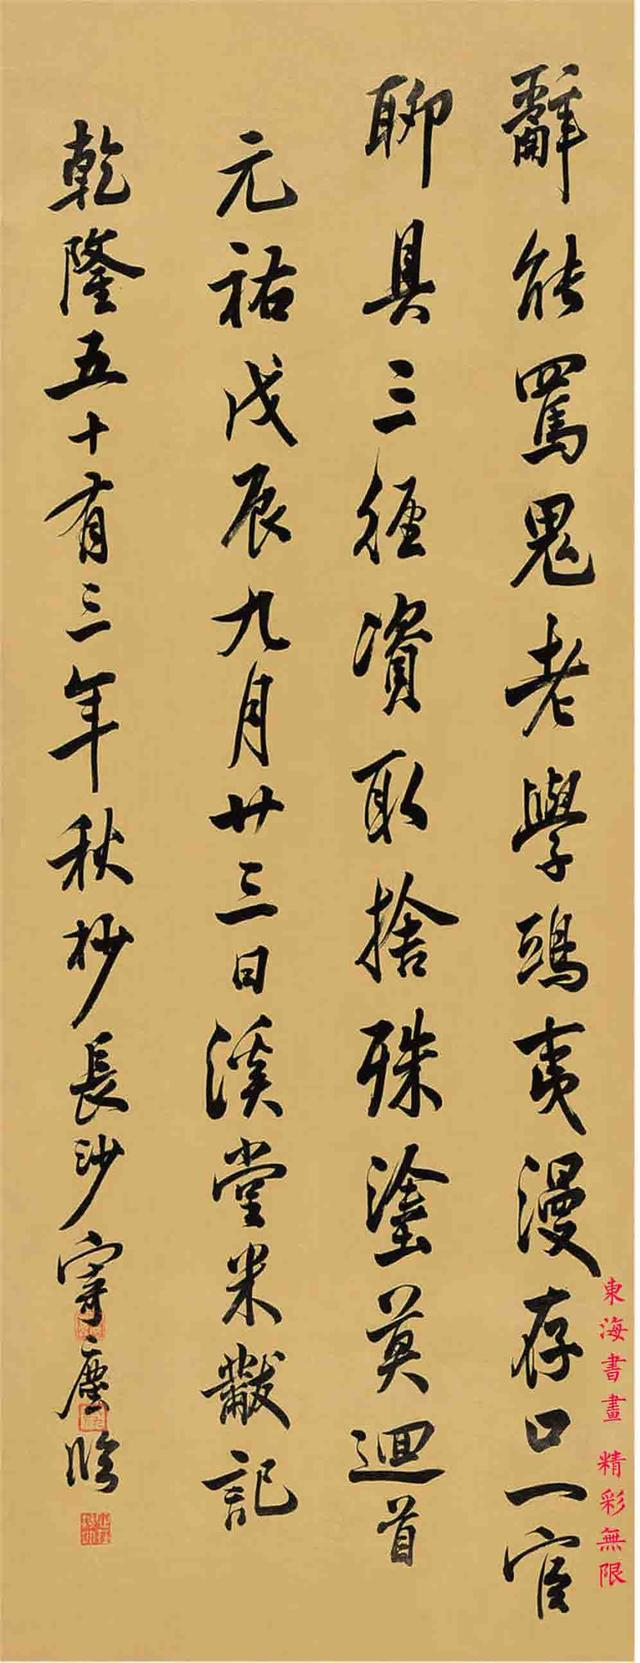 辭能罵鬼老學鴟夷漫存口一官
聊具三徑資取捨殊塗莫迴首
元祐戊辰九月廿三日溪堂米黻記
乾隆五十有三年秋杪長沙寄塵臨
東海書畫 精彩無限